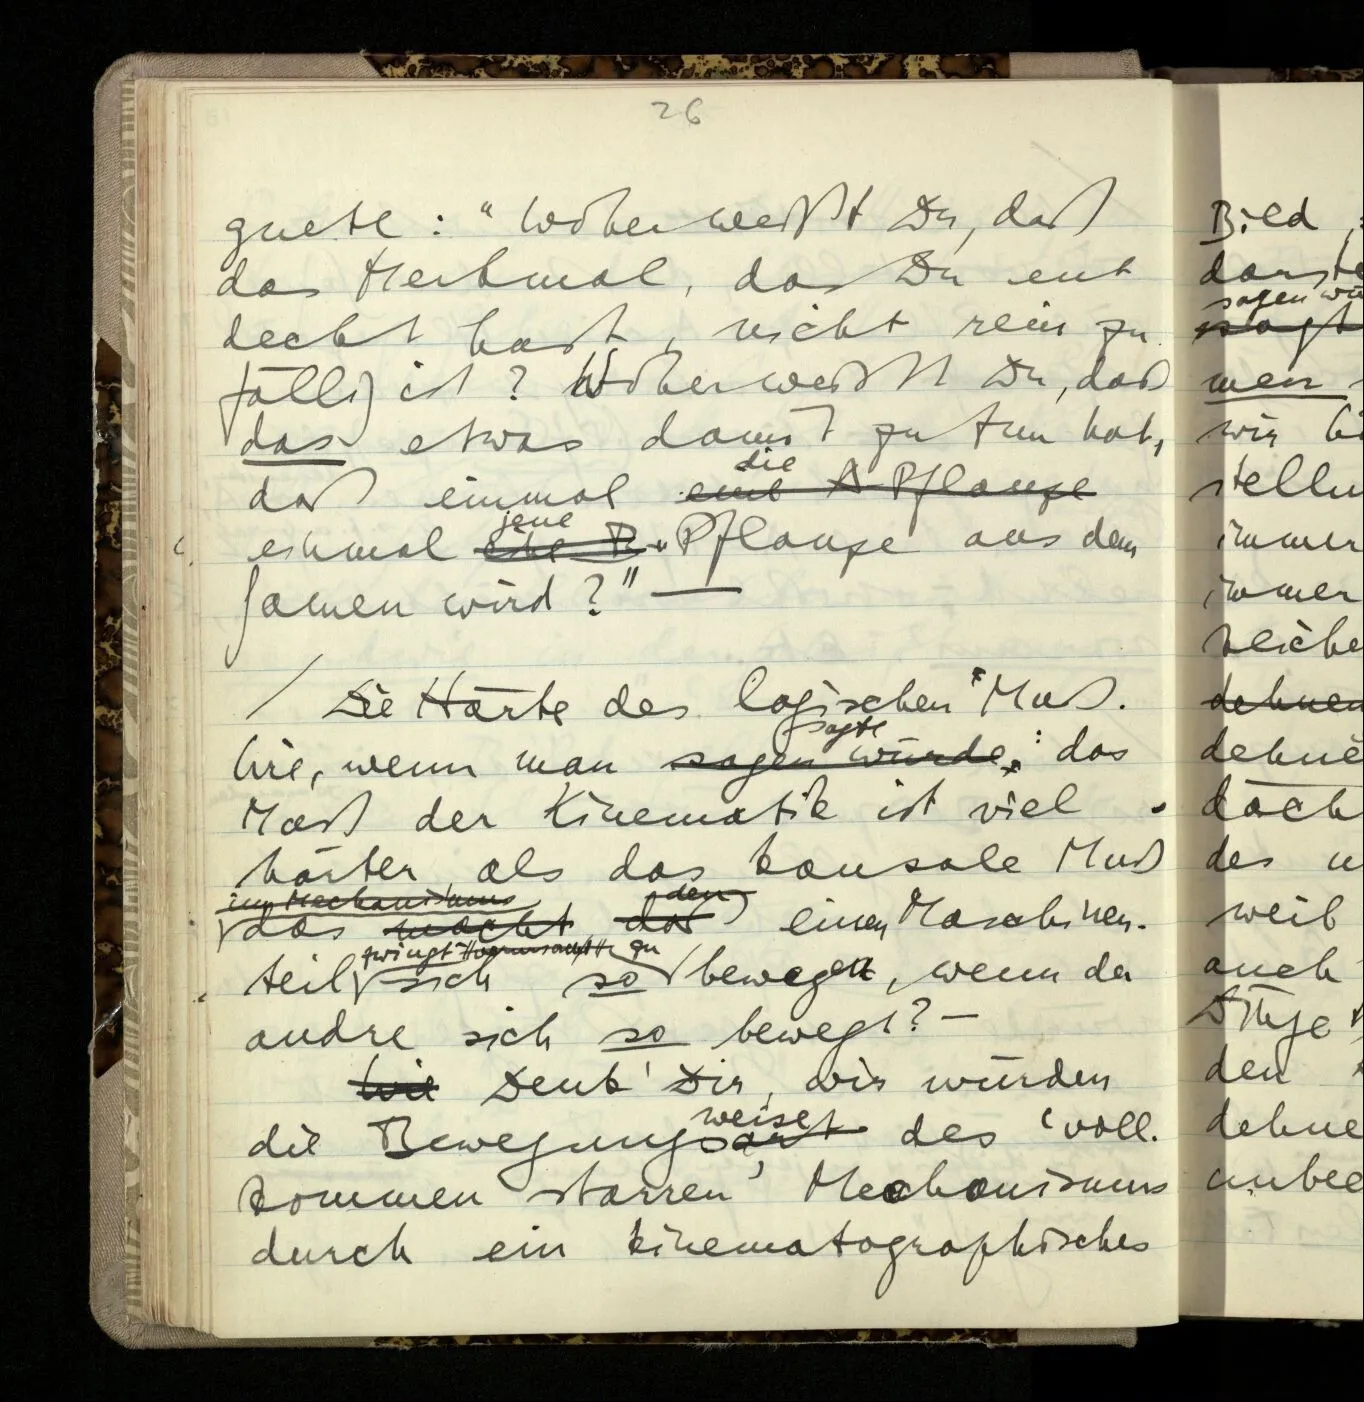 26
gnete : "Woher weißt Du, daß
das Merkmal, das Du ent
deckt hast, nicht rein zu
fällig ist? Woher weißt Du, daß
das etwas damit zu tun hat,
die
daß einmal eine A-Pflanze
jene
einmal eine B-Pflanze aus dem
Samen wird?" —
/ Die Härte des logischen Muß.
sagte
Wie, wenn man sagen würde: das
Muß der Kinematik ist viel
härter als das kausale Muß
im Mechanismus den
das macht daß einen Maschinen-
zwingt zu
teil sich so bewegen, wenn der
andre sich so bewegt? —
Wie Denk' Dir, wir würden
weise
die Bewegungsart des 'voll-
kommen starren' Mechanismus
durch ein kinematographisches
Bild
sagen wü
sagt
men
wir
stellu
immer
immer
dehnen
dehne
des
weil
auch
Dinge
den
dehne